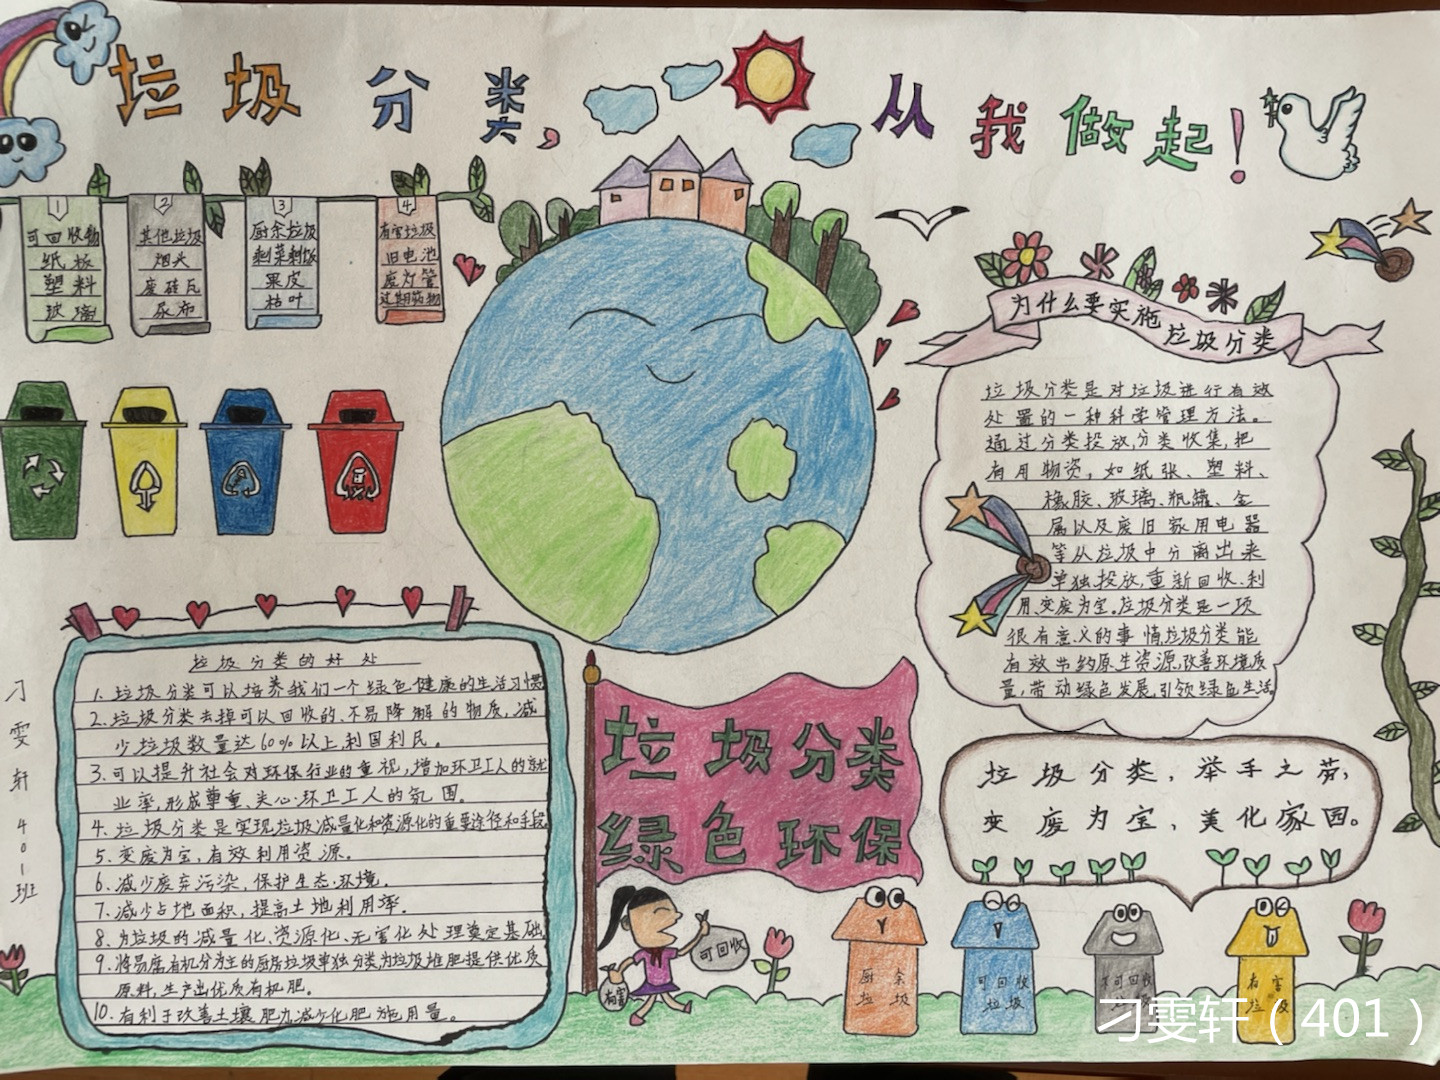 垃圾分类,
从我做起!
1
可回收物
纸板
塑料
玻璃
2
其他垃圾
烟头
废砖瓦
尿布
3
厨余垃圾
剩菜剩饭
果皮
枯叶
4
有害垃圾
旧电池
废灯管
过期药物
为什么要实施垃圾分类
垃圾分类是对垃圾进行有效
处置的一种科学管理方法。
通过分类投放,分类收集,把
有用物资,如纸张、塑料、
橡胶、玻璃、瓶罐、金
属以及废旧家用电器
等从垃圾中分离出来
单独投放,重新回收、利
用,变废为宝。垃圾分类是一项
很有意义的事情垃圾分类能
有效节约原生资源,改善环境质
量,带动绿色发展,引领绿色生活。
垃圾分类的好处
1.垃圾分类可以培养我们一个绿色健康的生活习惯
2.垃圾分类去掉可以回收的、不易降解的物质,减
少垃圾数量达60%以上,利国利民。
3.可以提升社会对环保行业的重视,增加环卫工人的就
业率,形成尊重、关心环卫工人的氛围。
4.垃圾分类是实现垃圾减量化和资源化的重要途径和手段
5.变废为宝,有效利用资源。
6.减少废弃污染,保护生态环境。
7.减少占地面积,提高土地利用率.
8.为垃圾的减量化、资源化、无害化处理奠定基础
9.将易腐有机分为主的厨房垃圾单独分类为垃圾堆肥提供优质
原料,生产出优质有机肥。
10.有利于改善土壤肥力减少化肥施用量。
刁雯轩 401班
垃圾分类
绿色环保
垃圾分类,举手之劳;
变废为宝、美化家园。
可回收
有害
厨余
垃圾
可回收
垃圾
有害
垃圾
刁雯轩（401）